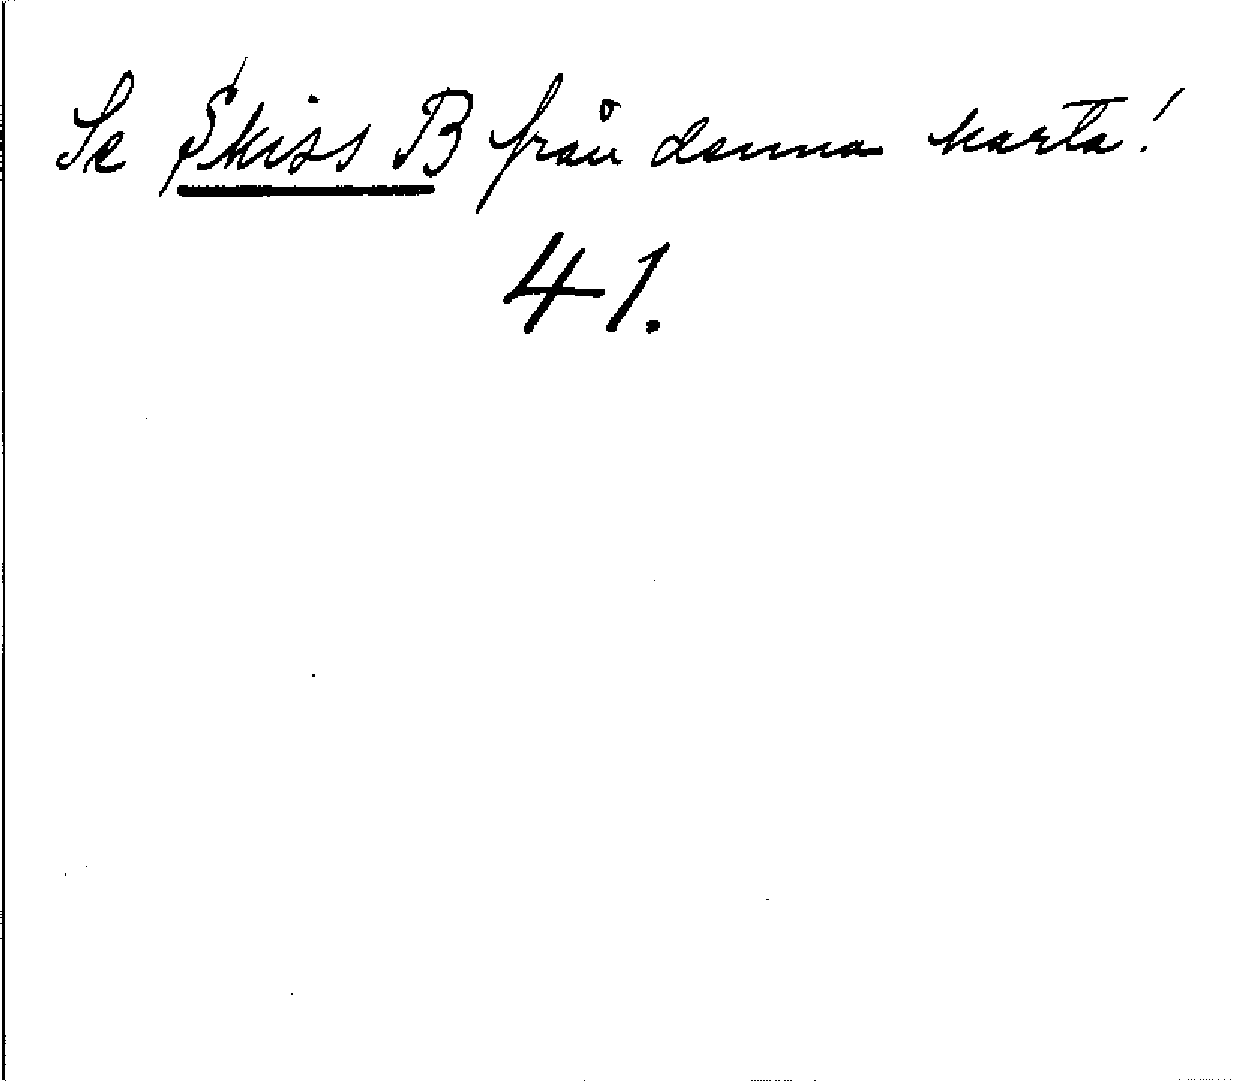 Se Skiss B från denna karta!
41.